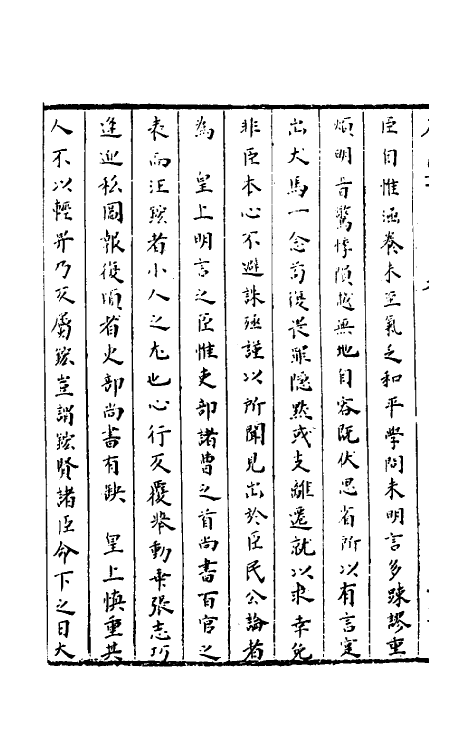 臣自惟涵養未至氣乏和平學問未明言多踈謬重
煩明旨驚悸隕越無地自容旣伏思省所以有言寔
出犬馬一念若復畏罪隱默或支離遷就以求幸免
非臣本心不避誅殛謹以所聞見出於臣民公論者
為 皇上明言之臣惟吏部諸曹之首尚書百官之
表而汪鋐者小人之尤也心行反覆舉動乖張志巧
逢迎私圖報復頃者吏部尚書有缺 皇上慎重其
人不以輕畀乃反屬鋐豈謂鋐賢諸臣命下之日大